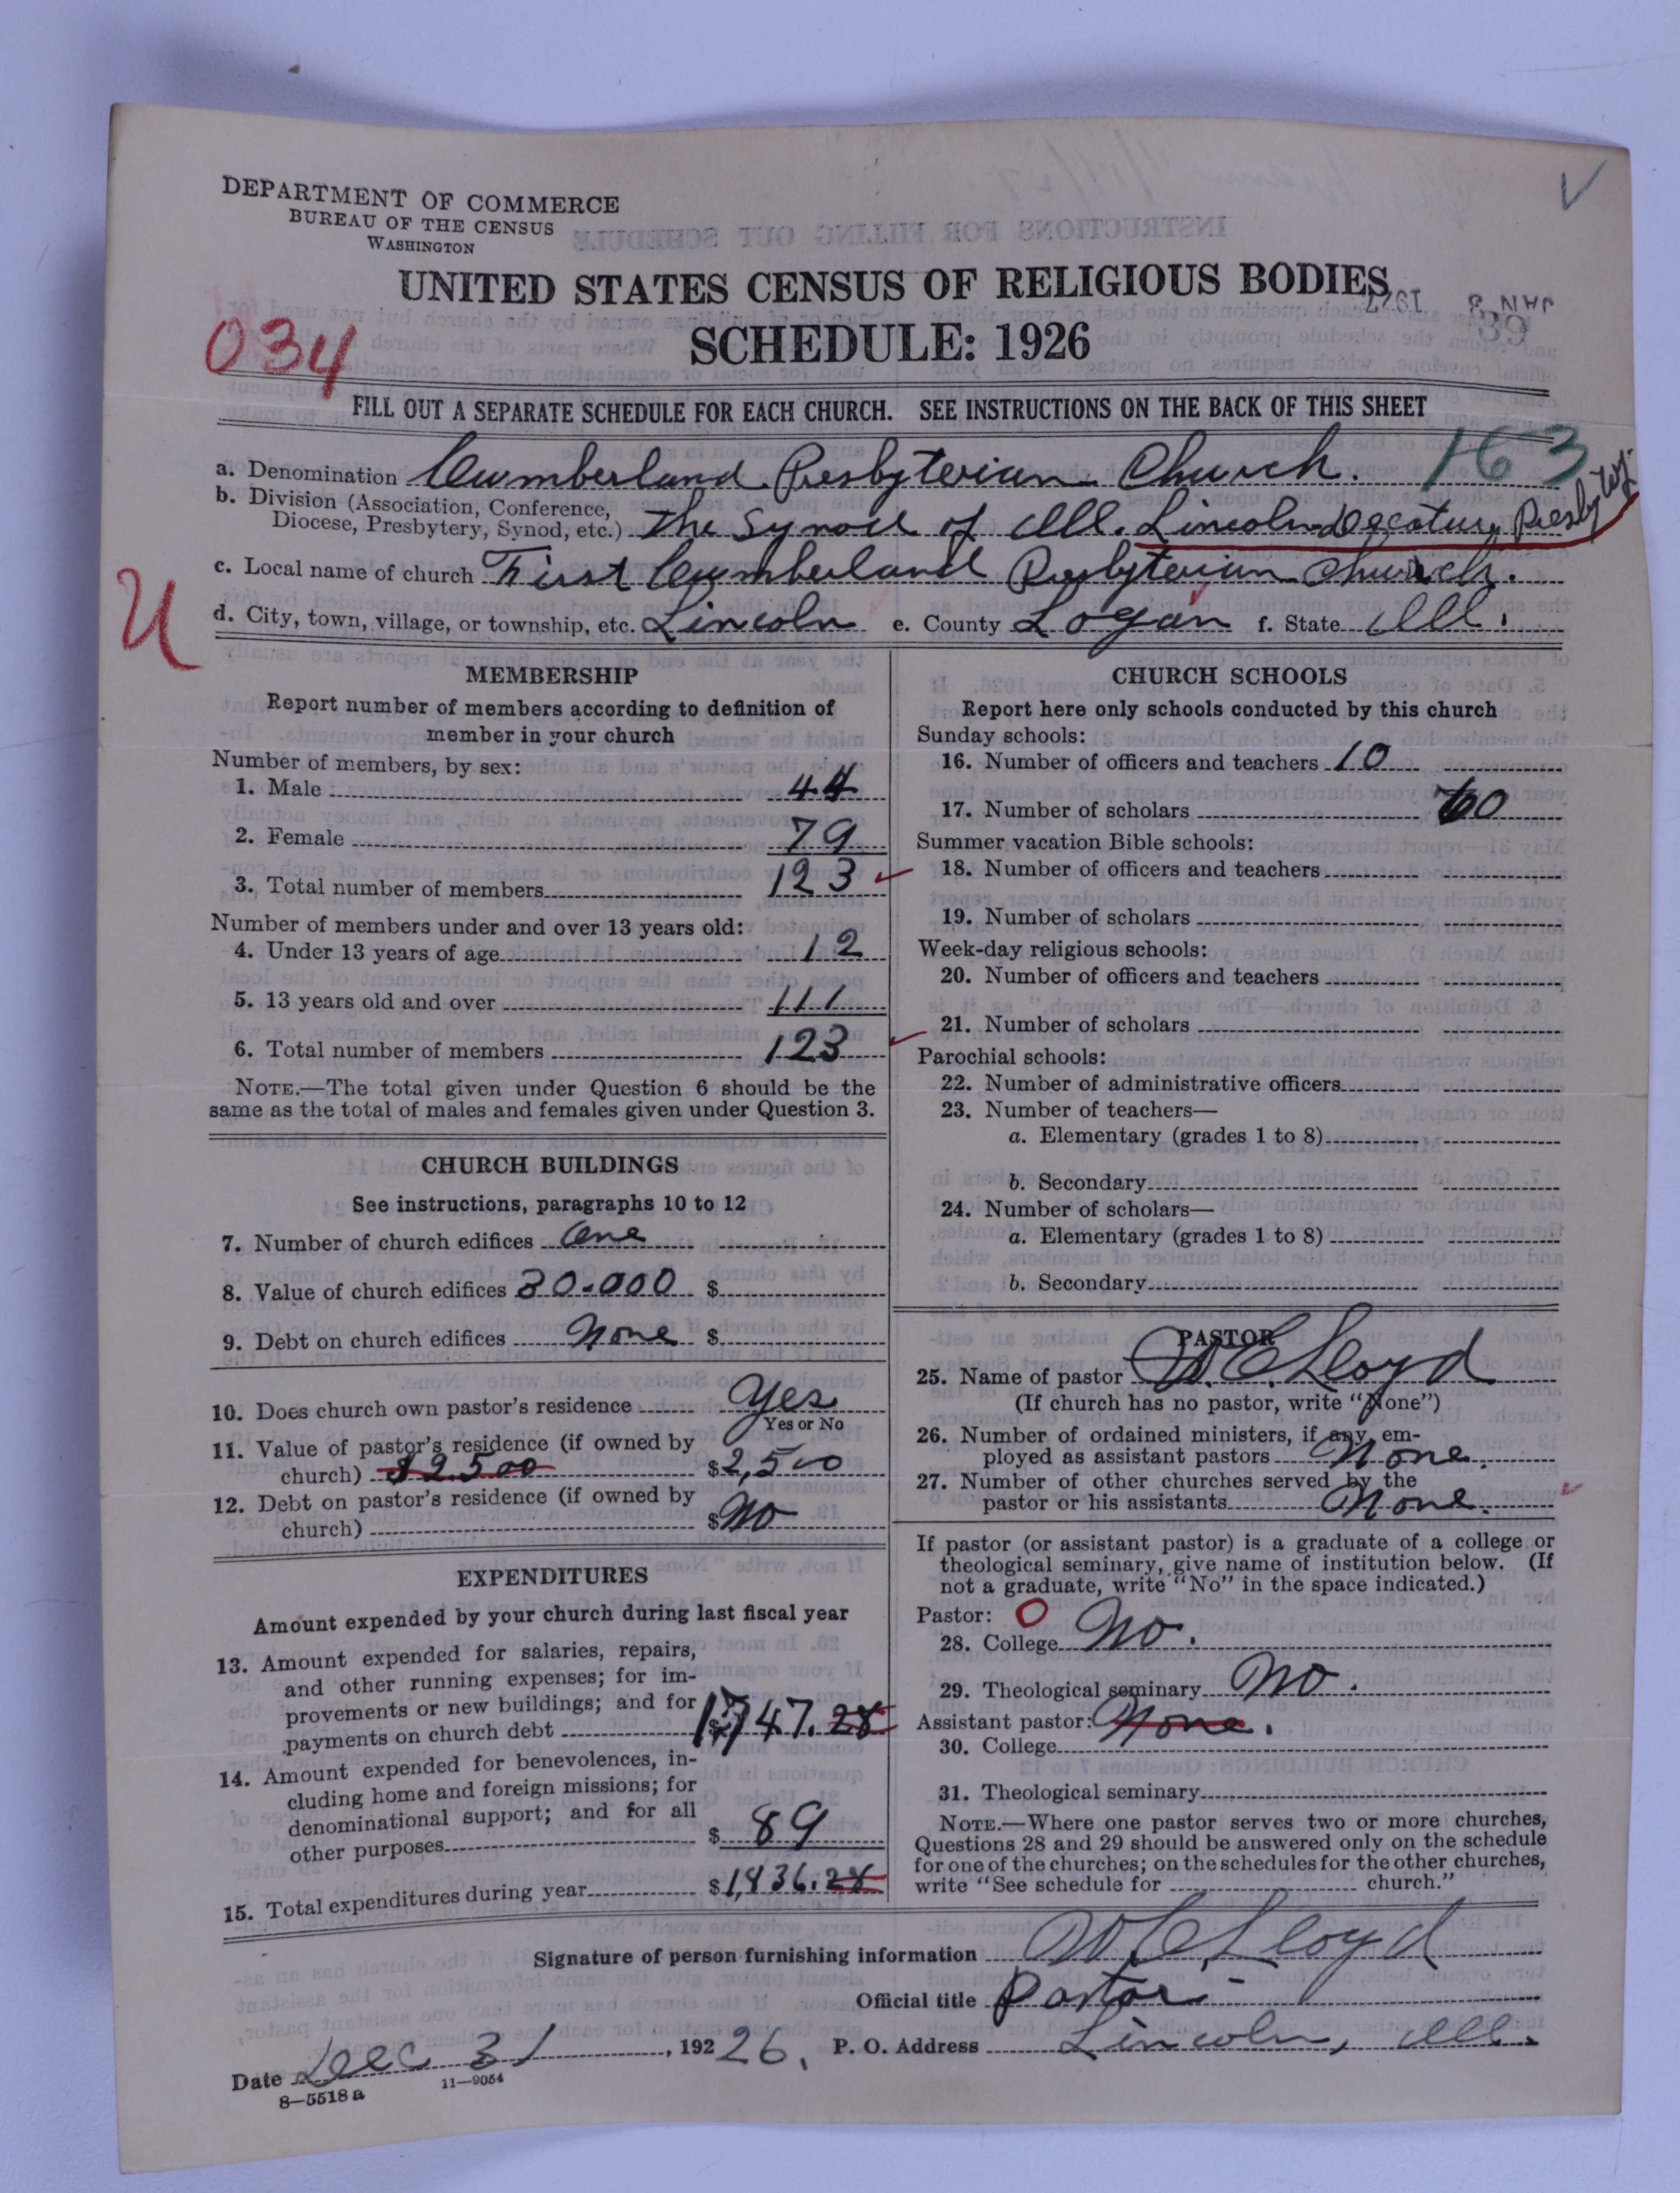 DEPARTMENT OF COMMERCE
BUREAU OF THE CENSUS
WASHINGTON
UNITED STATES CENSUS OF RELIGIOUS BODIES
SCHEDULE: 1926
JAN 3 1927
034
FILL OUT A SEPARATE SCHEDULE FOR EACH CHURCH. SEE INSTRUCTIONS ON THE BACK OF THIS SHEET
163
a. Denomination Cumberland Presbyterian Church.
b. Division (Association, Conference,
Diocese, Presbytery, Synod, etc.) The Synod of Ill. Lincoln-Decatur, Presbyty.
c. Local name of church First Cumberland Presbyterian Church.
U
d. City, town, village, or township, etc. Lincoln e. County Logan f. State Ill.
MEMBERSHIP
Report number of members according to definition of
member in your church
Number of members, by sex:
1. Male 44
2. Female 79
3. Total number of members 123
Number of members under and over 13 years old:
4. Under 13 years of age 12
5. 13 years old and over 111
6. Total number of members 123
NOTE.—The total given under Question 6 should be the
same as the total of males and females given under Question 3.
CHURCH BUILDINGS
See instructions, paragraphs 10 to 12
7. Number of church edifices One
8. Value of church edifices 30.000 $
9. Debt on church edifices None $
10. Does church own pastor's residence Yes
Yes or No
11. Value of pastor's residence (if owned by
church) $2500 $2,500
12. Debt on pastor's residence (if owned by
church) $No
EXPENDITURES
Amount expended by your church during last fiscal year
13. Amount expended for salaries, repairs,
and other running expenses; for im-
provements or new buildings; and for
payments on church debt $1747.28
14. Amount expended for benevolences, in-
cluding home and foreign missions; for
denominational support; and for all
other purposes $89
15. Total expenditures during year $1,836.28
CHURCH SCHOOLS
Report here only schools conducted by this church
Sunday schools:
16. Number of officers and teachers 10
17. Number of scholars 60
Summer vacation Bible schools:
18. Number of officers and teachers
19. Number of scholars
Week-day religious schools:
20. Number of officers and teachers
21. Number of scholars
Parochial schools:
22. Number of administrative officers
23. Number of teachers—
a. Elementary (grades 1 to 8)
b. Secondary
24. Number of scholars—
a. Elementary (grades 1 to 8)
b. Secondary
PASTOR
25. Name of pastor W. C. Lloyd
(If church has no pastor, write "None")
26. Number of ordained ministers, if any em-
ployed as assistant pastors None.
27. Number of other churches served by the
pastor or his assistants None.
If pastor (or assistant pastor) is a graduate of a college or
theological seminary, give name of institution below. (If
not a graduate, write "No" in the space indicated.)
Pastor: O
28. College No.
29. Theological seminary No.
Assistant pastor: None.
30. College
31. Theological seminary
NOTE.—Where one pastor serves two or more churches,
Questions 28 and 29 should be answered only on the schedule
for one of the churches; on the schedules for the other churches,
write "See schedule for church."
Signature of person furnishing information W C Lloyd
Official title Pastor
Date Dec 31, 19226. P. O. Address Lincoln, Ill.
8—5518 a 11—9054